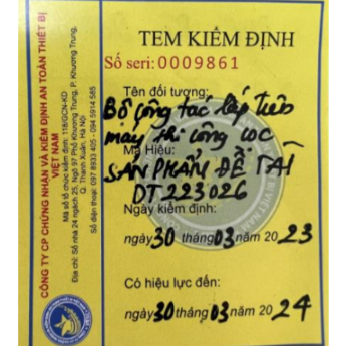 CÔNG TY CP CHỨNG NHẬN VÀ KIỂM ĐỊNH AN TOÀN THIẾT BỊ
VIỆT NAM
Mã số tổ chức kiểm định: 118/GCN-KD
Địa chỉ: Số nhà 24 ngách 25, Ngõ 97 Phố Khương Trung, P. Khương Trung,
Q. Thanh Xuân, Hà Nội
Số điện thoại: 097 8933 405 - 094 5914 585
TEM KIỂM ĐỊNH
Số seri: 0009861
Tên đối tượng:
Bộ công tác lắp trên
máy thi công cọc
Mã Hiệu:
SẢN PHẨM ĐỀ TÀI
DT 223026
Ngày kiểm định:
ngày 30 tháng 03 năm 2023
Có hiệu lực đến:
ngày 30 tháng 03 năm 2024